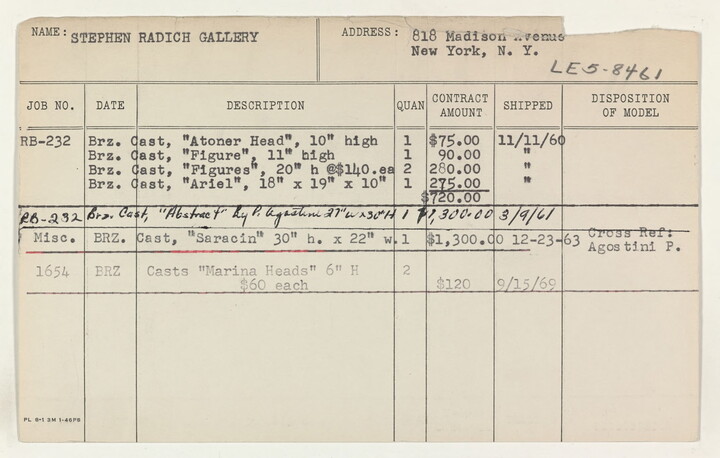 NAME: STEPHEN RADICH GALLERY ADDRESS: 818 Madison Avenue
New York, N. Y.
LE5-8461
JOB NO. DATE DESCRIPTION QUAN CONTRACT AMOUNT SHIPPED DISPOSITION OF MODEL
RB-232 Brz. Cast, "Atoner Head", 10" high 1 $75.00 11/11/60
Brz. Cast, "Figure", 11" high 1 90.00 "
Brz. Cast, "Figures", 20" h @$140.ea 2 280.00 "
Brz. Cast, "Ariel", 18" x 19" x 10" 1 275.00 "
$720.00
RB-232 Brz. Cast, "Abstract" by P. Agostini 27" W x 30" H 1 $1,300.00 3/9/61
Misc. BRZ. Cast, "Saracin" 30" h. x 22" w. 1 $1,300.00 12-23-63 Cross Ref:
Agostini P.
1654 BRZ Casts "Marina Heads" 6" H 2
$60 each $120 9/15/69
PL 6-1 3M 1-46PS